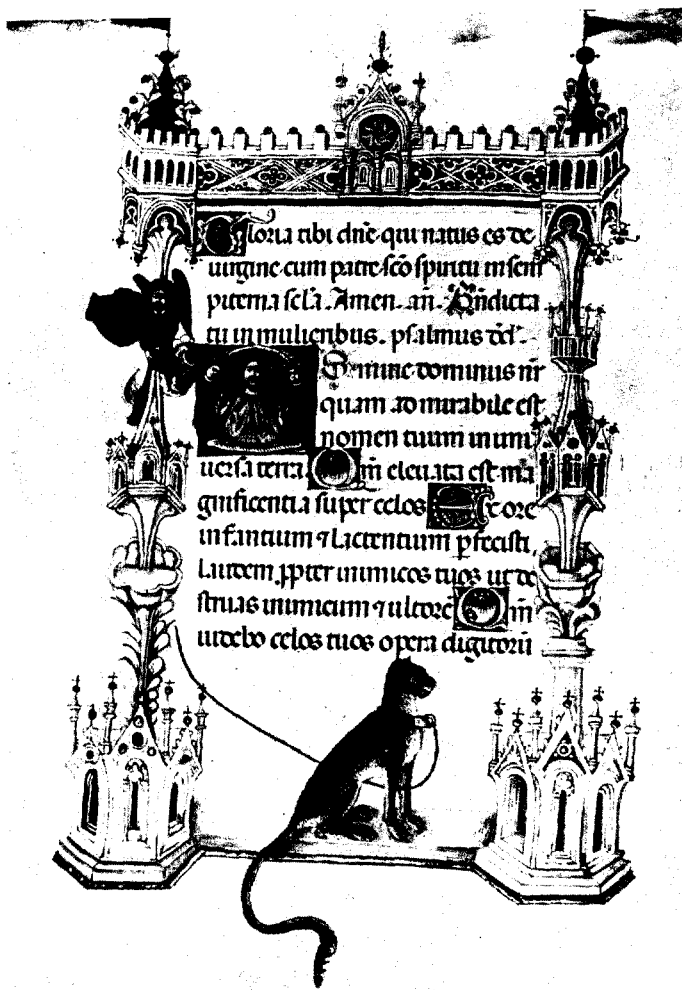 Gloria tibi dn̄e qui natus es de
uirgine cum patre sc̄o spiritu in sem
piterna sc̄la. Amen. an̄. Bn̄dicta
tu in mulieribus. psalmus dd̄.
Domine dominus nr̄
quam admirabile est
nomen tuum in uni
uersa terra. Qm̄ eleuata est ma
gnificentia super celos Ex ore
infantium ⁊ lactentium ꝑfecisti
laudem ꝓpter inimicos tuos ut de
struas inimicum ⁊ ultorē Qm̄
uidebo celos tuos opera digitorū